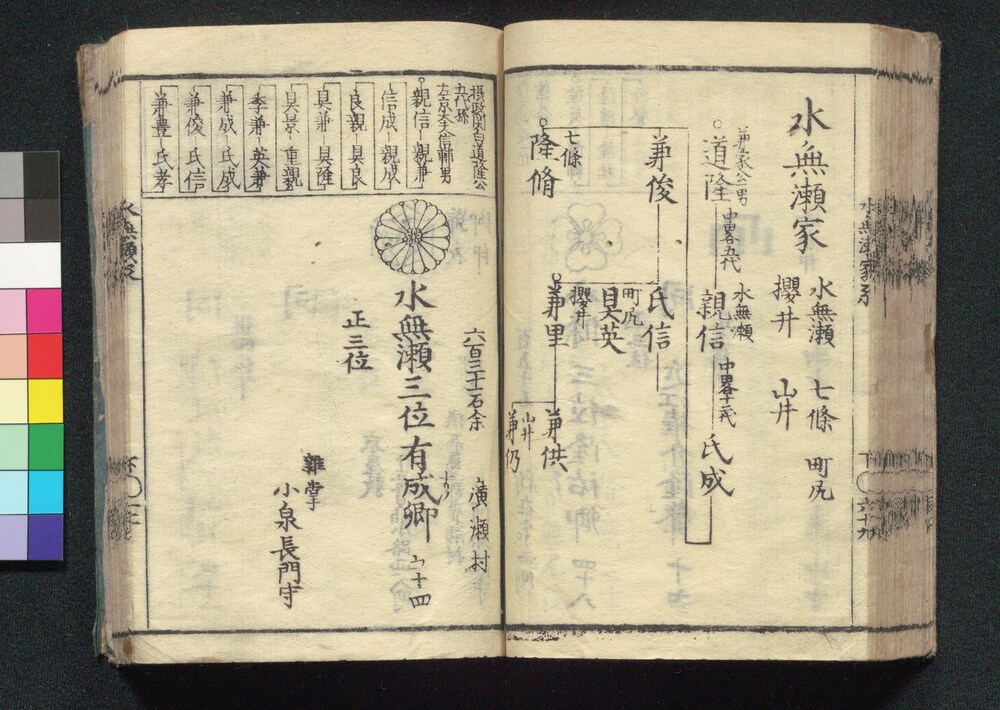 水無瀬家
水無瀬 七條 町尻
櫻井 山井
兼家公一男
道隆
中畧五代
水無瀬
親信
中畧十二代
氏成
兼俊
氏信
町尻
具英
七條
隆脩
櫻井
兼里
兼供
山井
兼仍
水無瀬家系
下
六十九
摂政関白道隆公
五代孫
左京大夫信輔男
親信 親兼
信成 親成
良親 具良
具兼 具隆
具景 重親
季兼 英兼
兼成 氏成
兼俊 氏信
兼豊 氏孝
六百三十一石余
廣瀬村
水無瀬三位有成卿
正三位
雜掌
小泉長門守